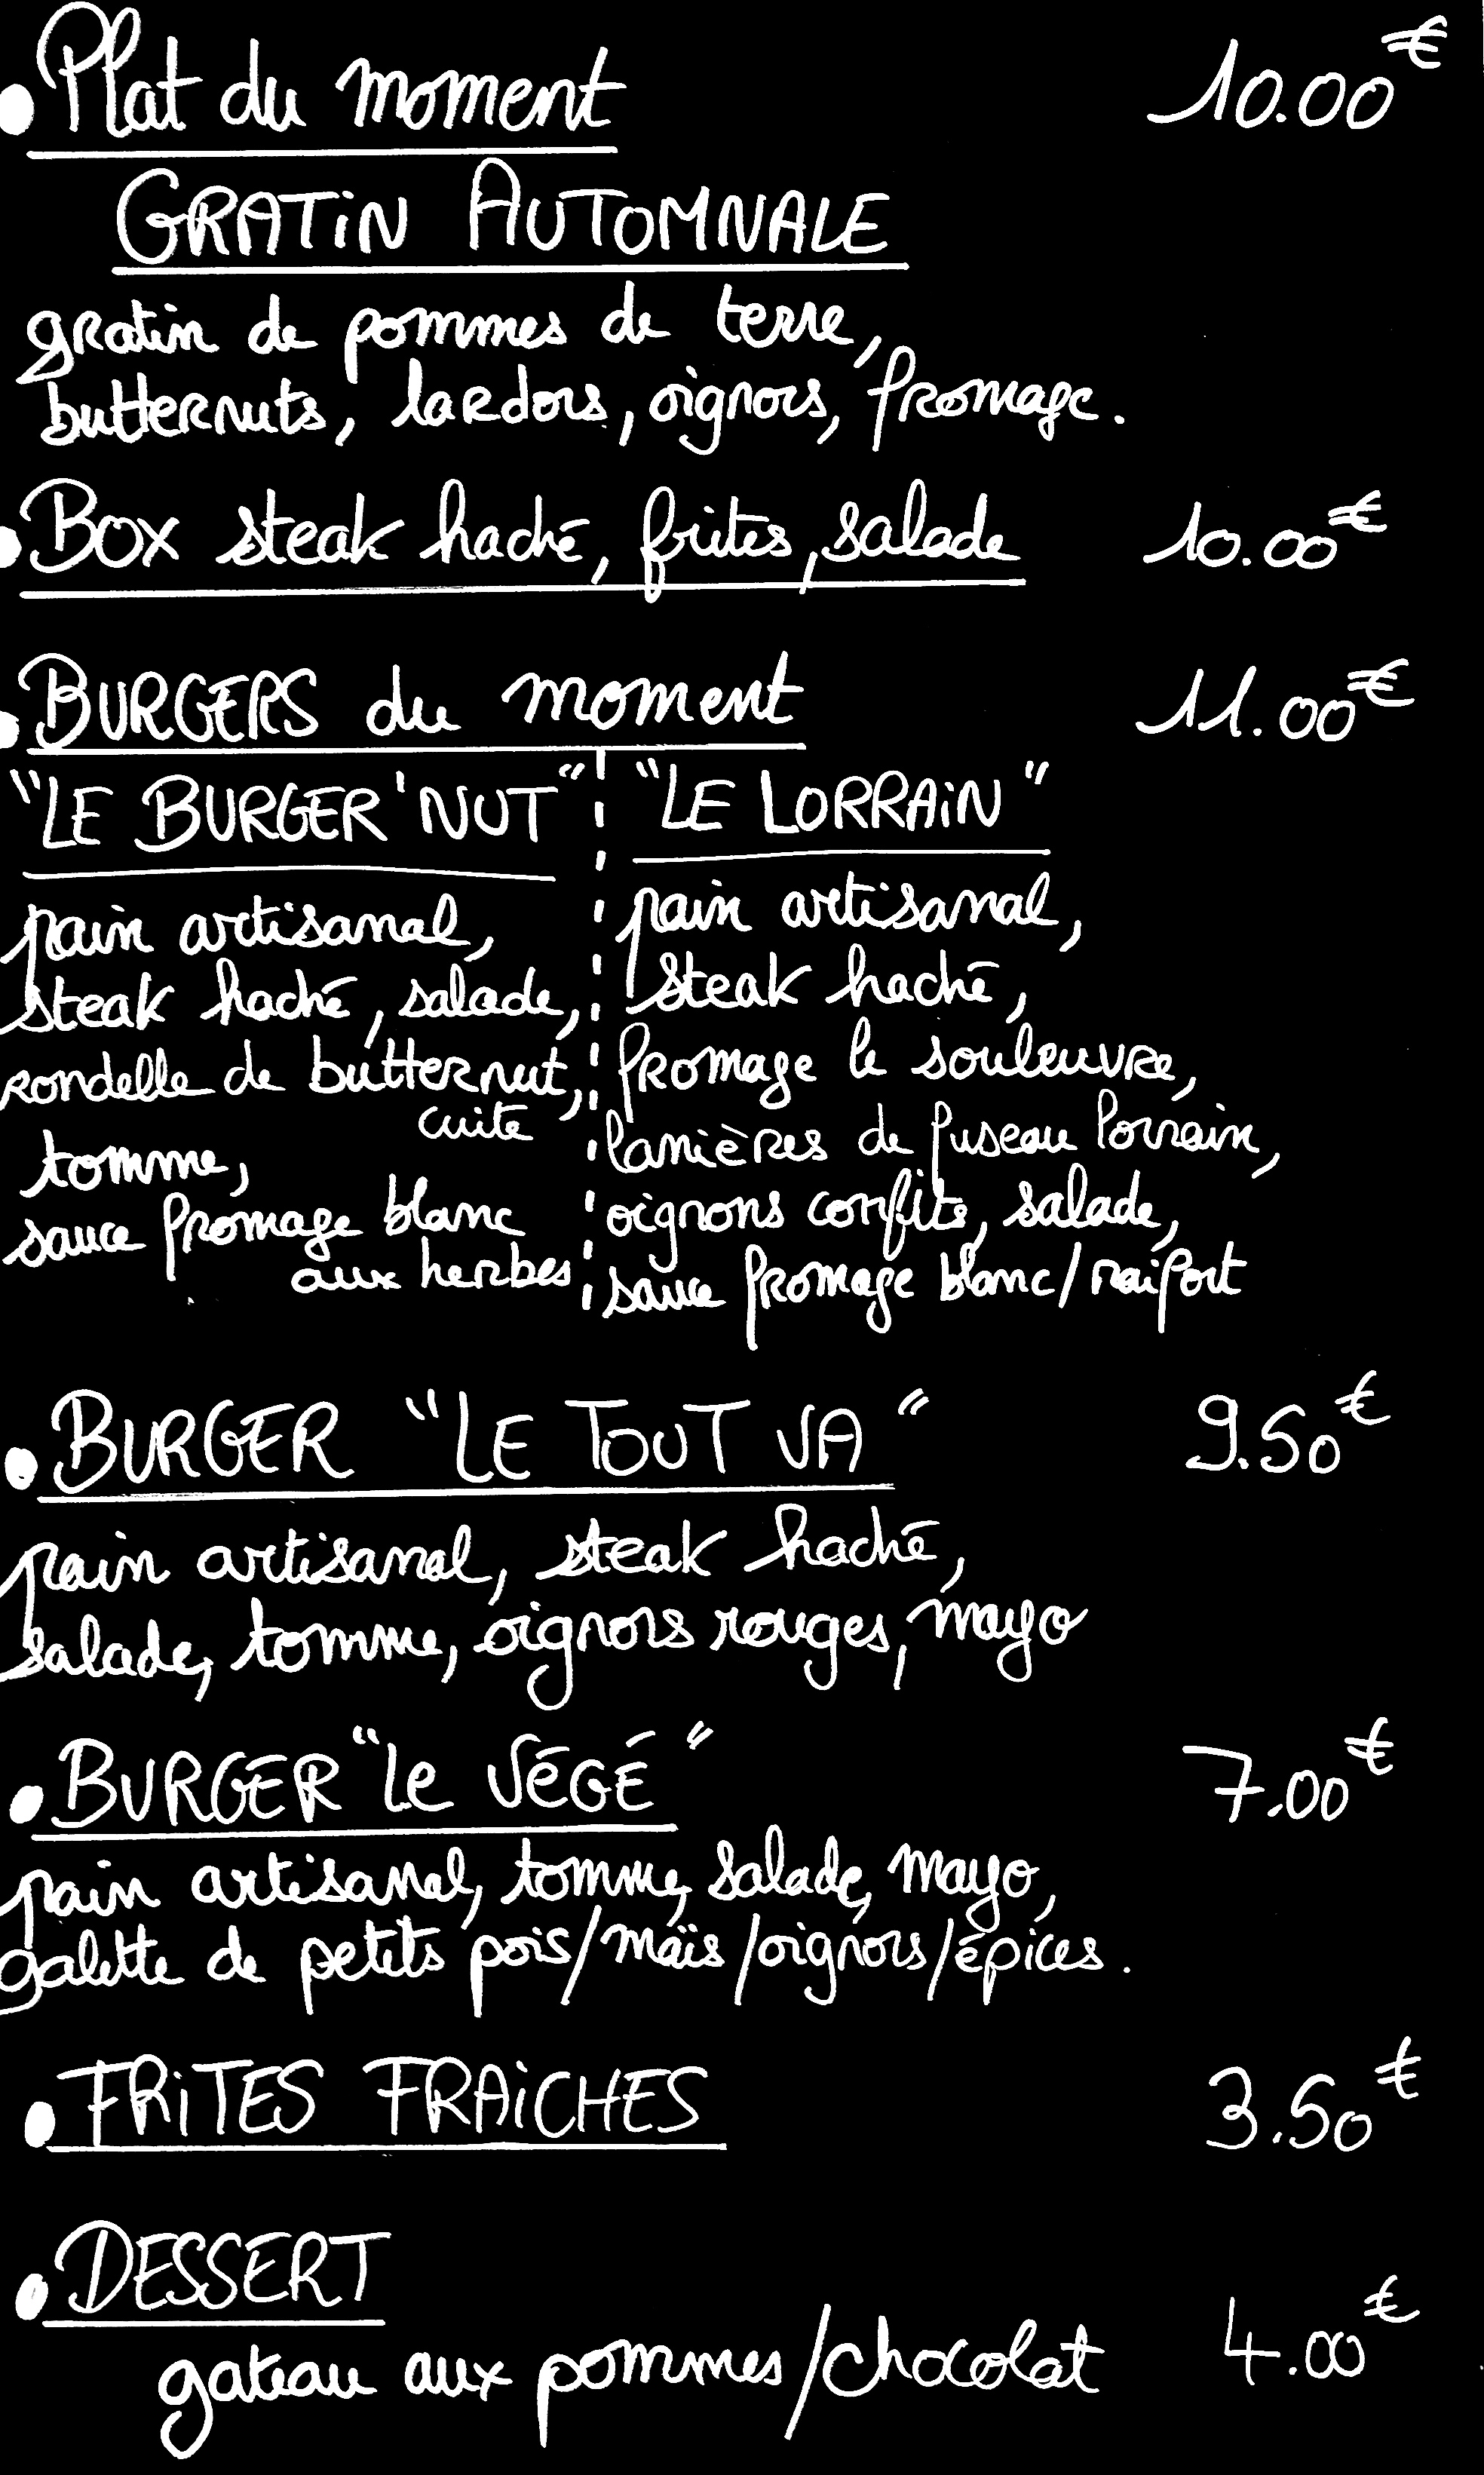 • Plat du moment 10.00€
GRATiN AUTOMNALE
gratin de pommes de terre,
butternuts, lardons, oignons, fromage.
• Box steak haché, frites, salade 10.00€
• BURGERS du moment 11.00€
"LE BURGER'NUT"
pain artisanal,
steak haché, salade,
rondelle de butternut,
cuite
tomme,
sauce fromage blanc
aux herbes
"LE LORRAiN"
pain artisanal,
steak haché,
fromage le souleuvre,
lanières de fuseau lorrain,
oignons confits, salade,
sauce fromage blanc/raifort
• BURGER "LE TOUT VA" 9.50€
pain artisanal, steak haché,
salade, tomme, oignons rouges, mayo
• BURGER "le VÉGÉ" 7.00€
pain artisanal, tomme, salade, mayo,
galette de petits pois/maïs/oignons/épices.
• FRiTES FRAiCHES 3.50€
• DESSERT
gateau aux pommes/chocolat 4.00€